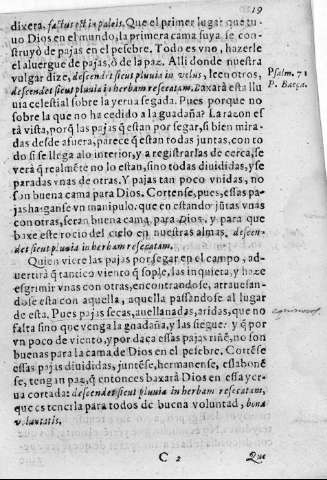 19
dixera, factus est in paleis. Que el primer lugar que tu-
uo Dios en el mundo, la primera cama suya, se con-
struyò de pajas en el pesebre. Todo es vno, hazerle
el aluergue de pajas, ò de la paz. Alli donde nuestra
vulgar dize, descendet sicut pluuia in velus, leen otros,
descendet sicut pluuia in herbam resecatam. Baxarà esta llu
uia celestial sobre la yerua segada. Pues porque no
sobre la que no ha cedido a la guadaña? La razon es
tà vista, porq̃ las pajas q̃ estan por segar, si bien mira-
das desde afuera, parece q̃ estan todas juntas, con to
do si se llega alo interior, y a registrarlas de cerca, se
verà q̃ realmẽte no lo estan, sino todas diuididas, y se
paradas vnas de otras. Y pajas tan poco vnidas, no
son buena cama para Dios. Cortense, pues, essas pa-
jas, haganse vn manipulo, que en estando jũtas vnas
con otras, seran buena cama para Dios, y para que
baxe este rocio del cielo en nuestras almas, descen-
det sicut pluuia in herbam resecatam.
Quien viere las pajas por segar en el campo, ad-
uertirà q̃ tantico viento q̃ sople, las inquieta, y haze
esgrimir vnas con otras, encontrandose, atrauesan-
dose esta con aquella, aquella passandose al lugar
de esta. Pues pajas secas, auellanadas, aridas, que no
falta sino que venga la guadaña, y las siegue, y q̃ por
vn poco de viento, y por daca essas pajas riñẽ, no son
buenas para la cama de Dios en el pesebre. Cortẽse
essas pajas diuididas, juntẽse, hermanense, eslabonẽ
se, tengan paz, q̃ entonces baxarà Dios en essa yer-
ua cortada: descendet sicut pluuia in herbam resecatam,
que es tenerla para todos de buena voluntad, bona
voluntatis.
Psalm. 71
P. Baeça.
C 2
Que